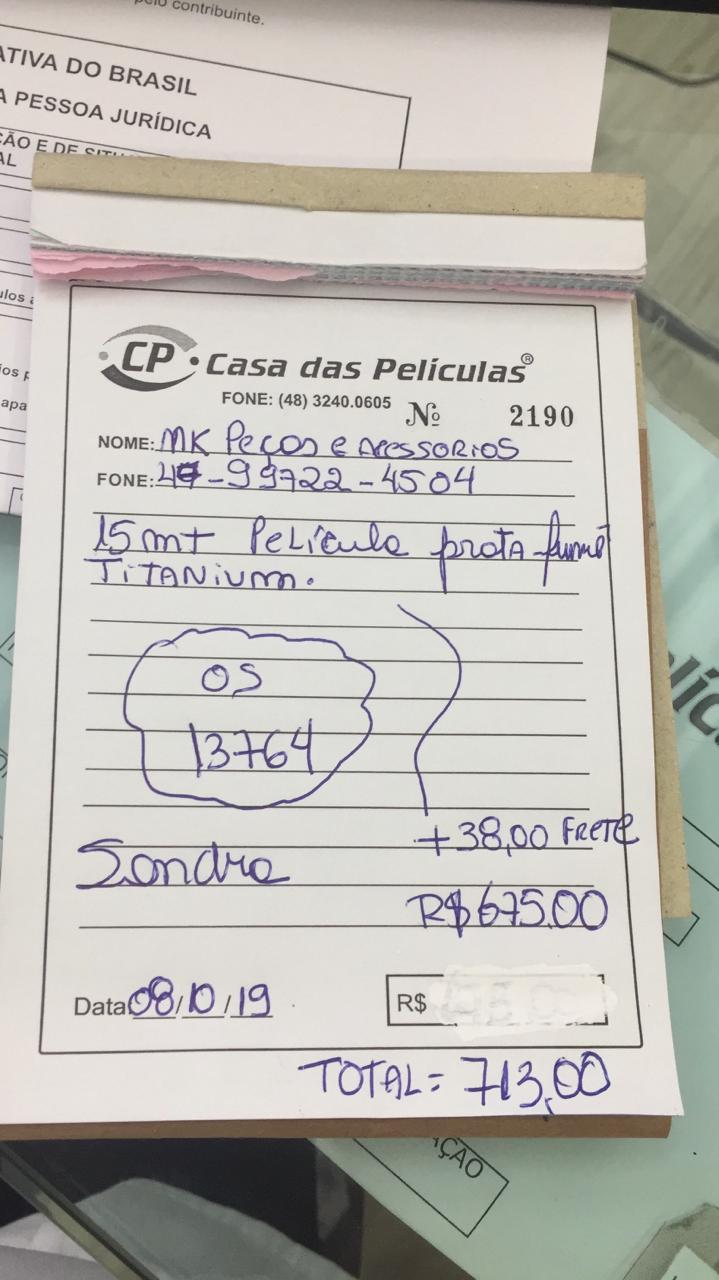 pelo contribuinte.
ATIVA DO BRASIL
A PESSOA JURÍDICA
ÇÃO E DE
AL
CP Casa das Películas®
FONE: (48) 3240.0605 Nº 2190
NOME: MK Peças e Acessorios
FONE: 47-99722-4504
15mt Película prata fumê
TITANIUM.
OS
13764
+38,00 FRETE
Sandra
R$675,00
Data 08/10/19 R$
TOTAL = 713,00
ÇÃO